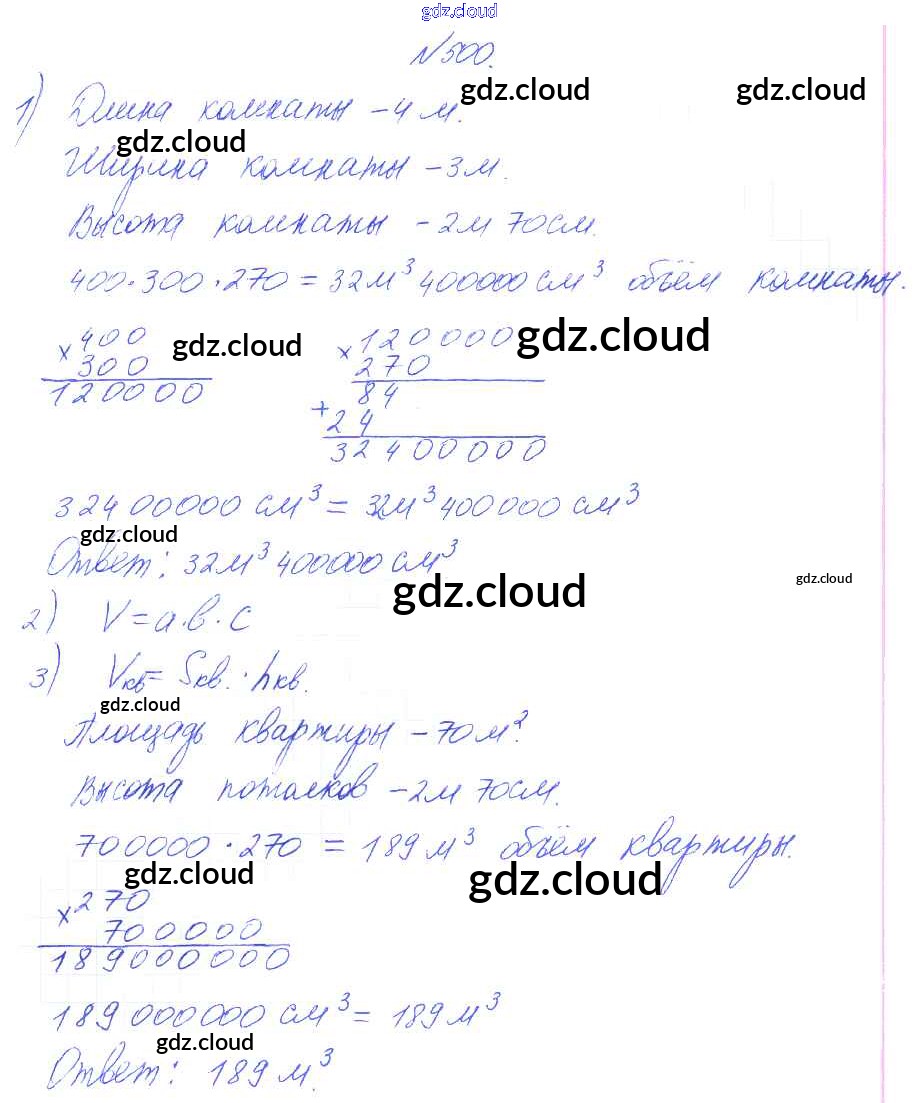 gdz.cloud
№500.
1) Длина комнаты – 4 м.
gdz.cloud gdz.cloud
gdz.cloud
Ширина комнаты – 3м.
Высота комнаты – 2м 70см.
400·300·270 = 32м³ 400000 см³ объём комнаты.
×400 ×120000
gdz.cloud gdz.cloud
300 270
120000 84
+24
32400000
32400000 см³ = 32м³ 400000 см³
gdz.cloud
Ответ: 32м³ 400000 см³
gdz.cloud gdz.cloud
2) V = a·b·c
3) Vкв = Sкв. · hкв.
gdz.cloud
Площадь квартиры – 70м².
Высота потолков – 2м 70см.
700000 · 270 = 189 м³ объём квартиры.
gdz.cloud gdz.cloud
×270
700000
189000000
189 000000 см³ = 189 м³
gdz.cloud
Ответ: 189 м³.